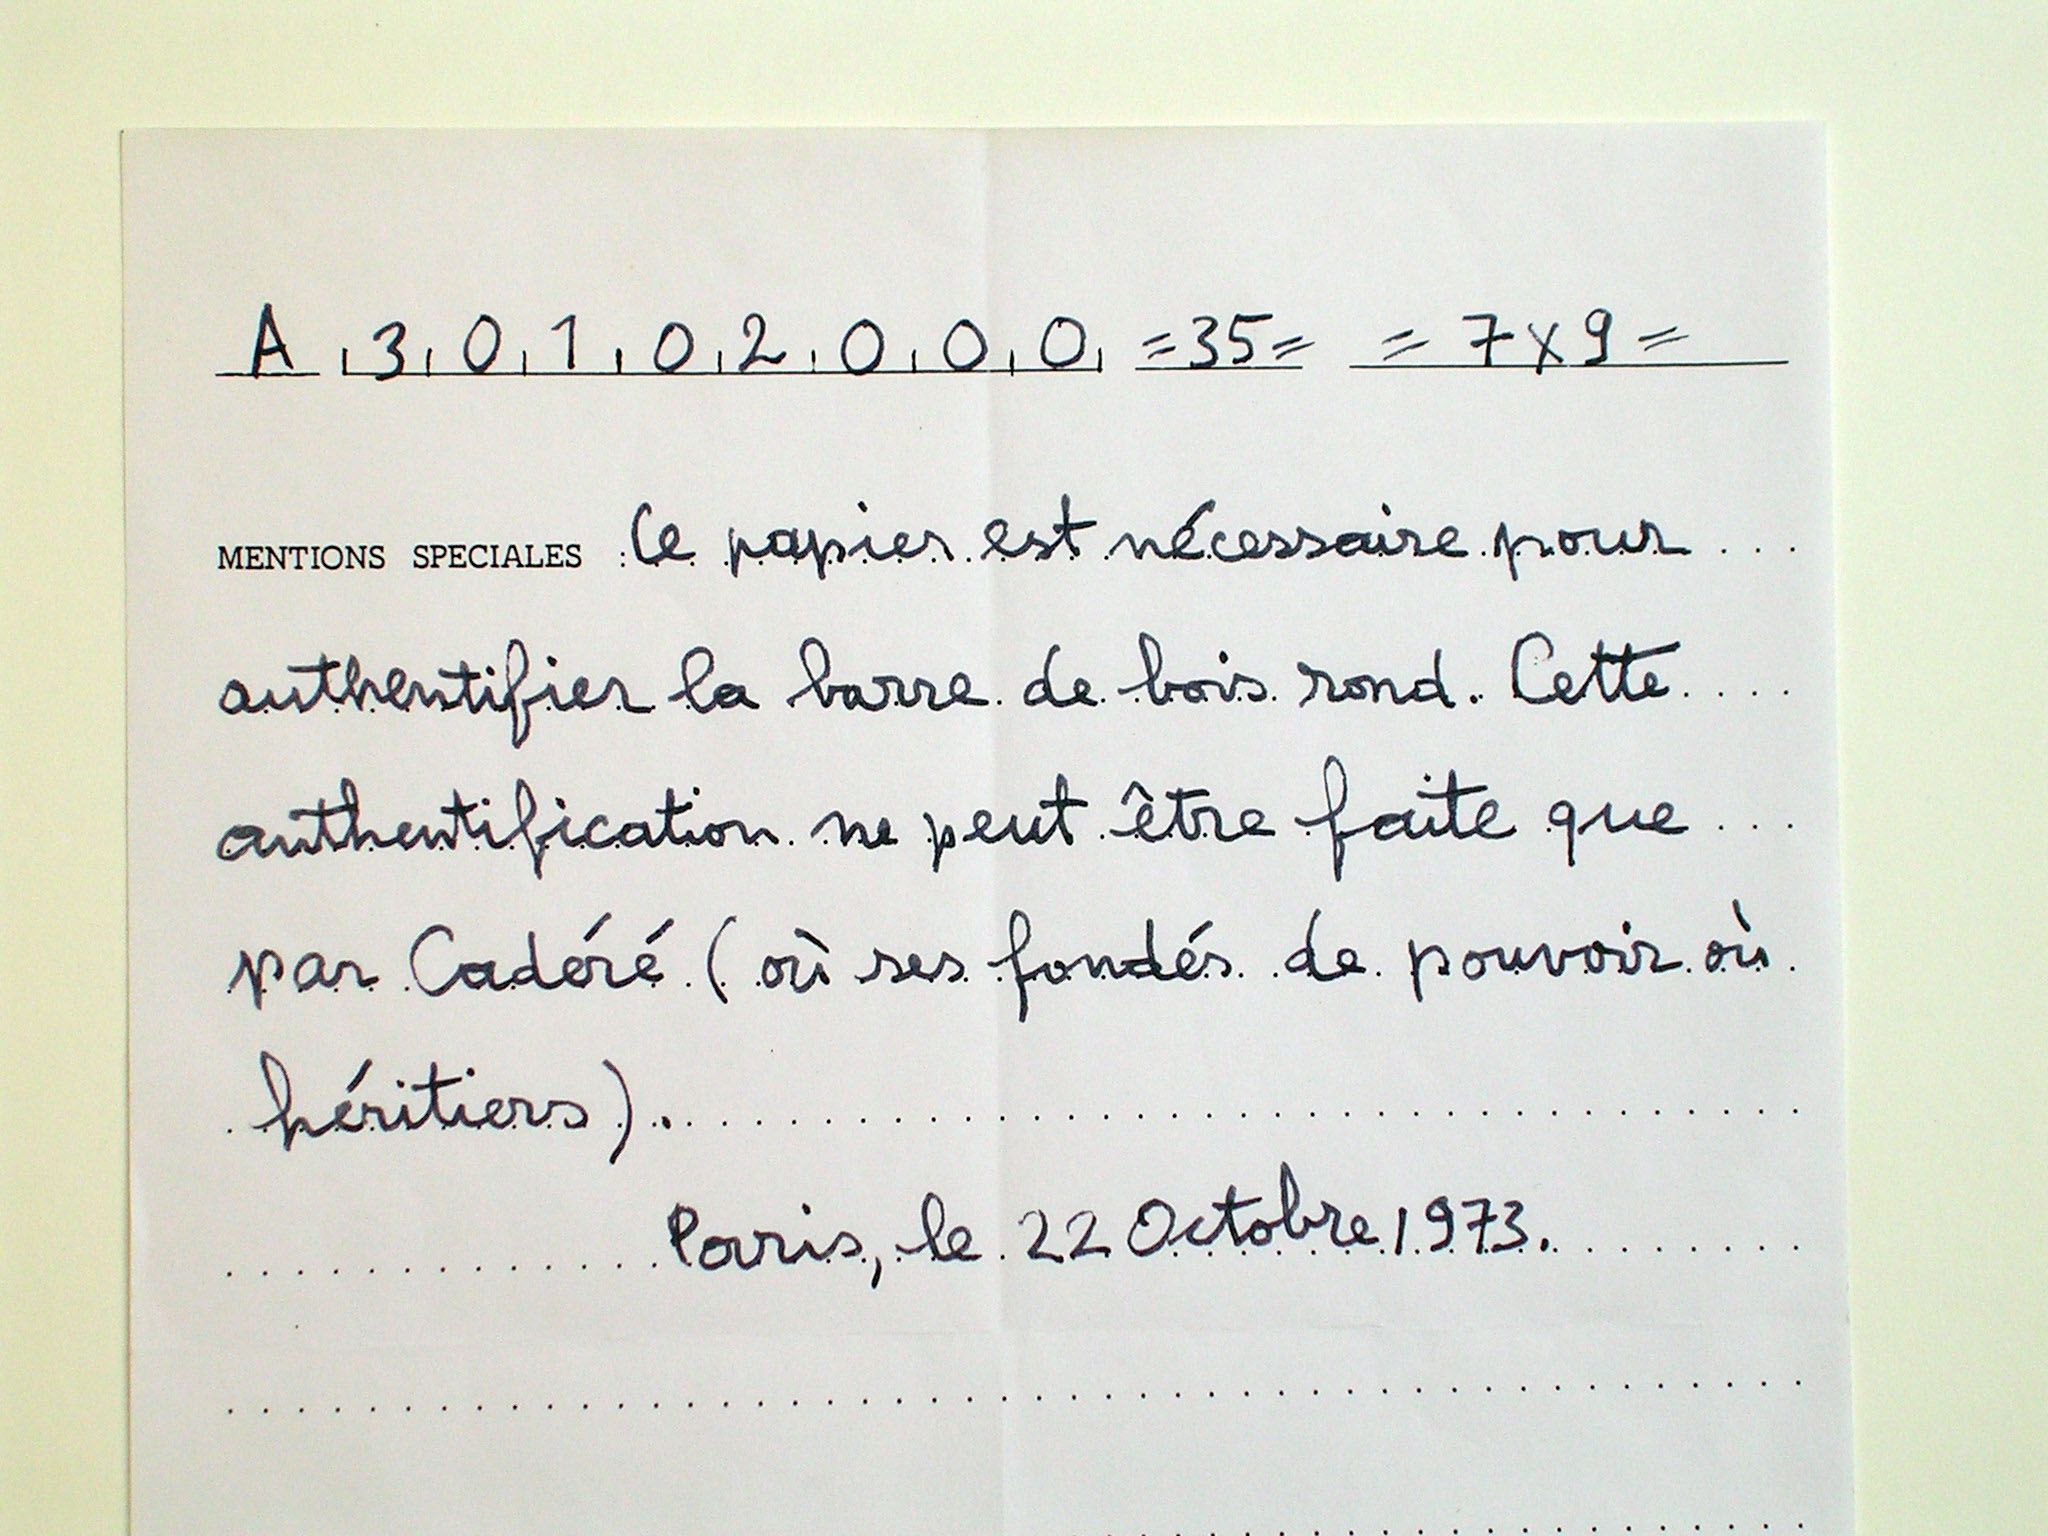 A 3 0 1 0 2 0 0 0 =35= = 7x9 =
MENTIONS SPECIALES : Ce papier est nécessaire pour
authentifier la barre de bois rond. Cette
authentification ne peut être faite que
par Cadéré (où ses fondés de pouvoir où
héritiers).
Paris, le 22 Octobre 1973.